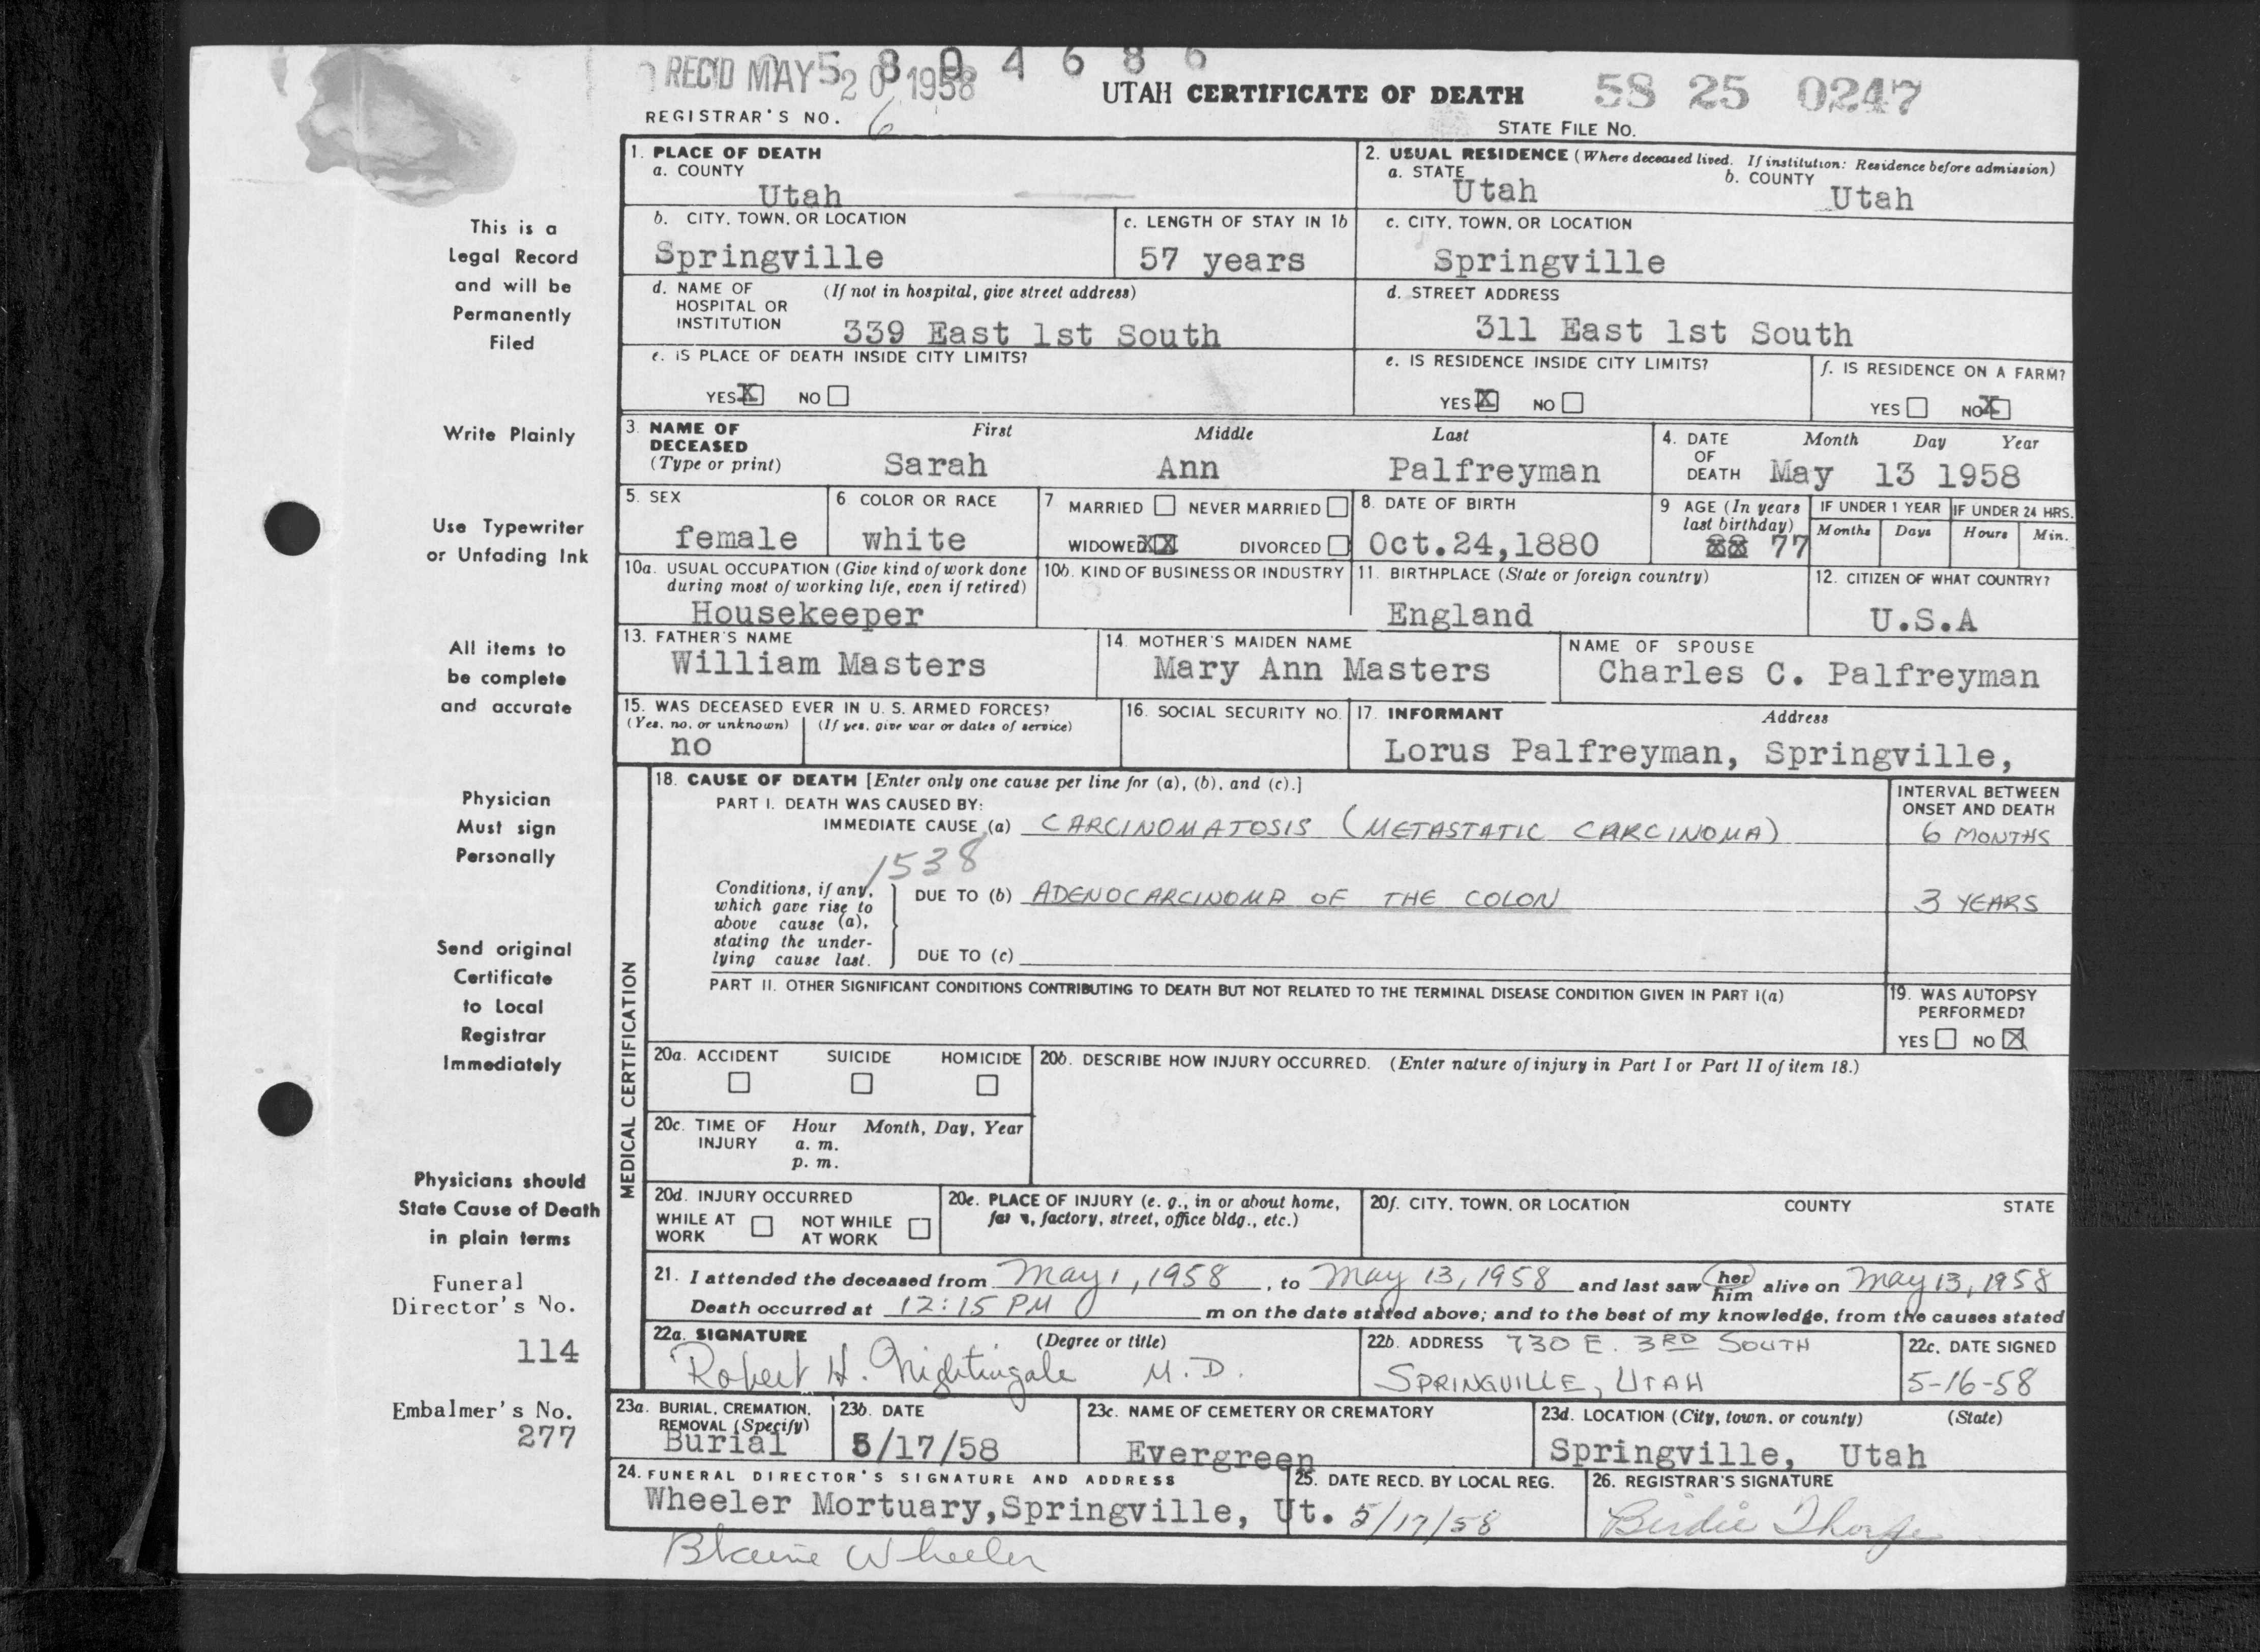 REC'D MAY 20 1958
5 8 0 4 6 8 6
UTAH CERTIFICATE OF DEATH
58 25 0247
REGISTRAR'S NO. 6
STATE FILE NO.
This is a
Legal Record
and will be
Permanently
Filed
Write Plainly
Use Typewriter
or Unfading Ink
All items to
be complete
and accurate
Physician
Must sign
Personally
Send original
Certificate
to Local
Registrar
Immediately
Physicians should
State Cause of Death
in plain terms
Funeral
Director's No.
114
Embalmer's No.
277
1. PLACE OF DEATH
a. COUNTY
Utah
2. USUAL RESIDENCE (Where deceased lived. If institution: Residence before admission)
a. STATE Utah b. COUNTY Utah
b. CITY, TOWN, OR LOCATION
Springville
c. LENGTH OF STAY IN 1b
57 years
c. CITY, TOWN, OR LOCATION
Springville
d. NAME OF HOSPITAL OR INSTITUTION (If not in hospital, give street address)
339 East 1st South
d. STREET ADDRESS
311 East 1st South
e. IS PLACE OF DEATH INSIDE CITY LIMITS?
YES X NO
e. IS RESIDENCE INSIDE CITY LIMITS?
YES X NO
f. IS RESIDENCE ON A FARM?
YES NO X
3. NAME OF DECEASED (Type or print)
First Middle Last
Sarah Ann Palfreyman
4. DATE OF DEATH
Month Day Year
May 13 1958
5. SEX
female
6. COLOR OR RACE
white
7 MARRIED NEVER MARRIED
WIDOWED XX DIVORCED
8. DATE OF BIRTH
Oct.24,1880
9 AGE (In years last birthday)
77
IF UNDER 1 YEAR
Months Days
IF UNDER 24 HRS.
Hours Min.
10a. USUAL OCCUPATION (Give kind of work done
during most of working life, even if retired)
Housekeeper
10b. KIND OF BUSINESS OR INDUSTRY
11. BIRTHPLACE (State or foreign country)
England
12. CITIZEN OF WHAT COUNTRY?
U.S.A
13. FATHER'S NAME
William Masters
14. MOTHER'S MAIDEN NAME
Mary Ann Masters
NAME OF SPOUSE
Charles C. Palfreyman
15. WAS DECEASED EVER IN U. S. ARMED FORCES?
(Yes, no, or unknown) (If yes, give war or dates of service)
no
16. SOCIAL SECURITY NO.
17. INFORMANT Address
Lorus Palfreyman, Springville,
MEDICAL CERTIFICATION
18. CAUSE OF DEATH [Enter only one cause per line for (a), (b), and (c).]
PART I. DEATH WAS CAUSED BY:
IMMEDIATE CAUSE (a) CARCINOMATOSIS (METASTATIC CARCINOMA)
INTERVAL BETWEEN
ONSET AND DEATH
6 MONTHS
1538
Conditions, if any,
which gave rise to
above cause (a),
stating the under-
lying cause last.
DUE TO (b) ADENOCARCINOMA OF THE COLON
3 YEARS
DUE TO (c)
PART II. OTHER SIGNIFICANT CONDITIONS CONTRIBUTING TO DEATH BUT NOT RELATED TO THE TERMINAL DISEASE CONDITION GIVEN IN PART I(a)
19. WAS AUTOPSY
PERFORMED?
YES NO X
20a. ACCIDENT SUICIDE HOMICIDE
20b. DESCRIBE HOW INJURY OCCURRED. (Enter nature of injury in Part I or Part II of item 18.)
20c. TIME OF INJURY
Hour Month, Day, Year
a. m.
p. m.
20d. INJURY OCCURRED
WHILE AT WORK NOT WHILE AT WORK
20e. PLACE OF INJURY (e. g., in or about home,
factory, street, office bldg., etc.)
20f. CITY, TOWN, OR LOCATION COUNTY STATE
21. I attended the deceased from May 1, 1958, to May 13, 1958 and last saw her him alive on May 13, 1958
Death occurred at 12:15 PM m on the date stated above; and to the best of my knowledge, from the causes stated
22a. SIGNATURE (Degree or title)
Robert H. Nightingale M.D.
22b. ADDRESS 730 E. 3RD SOUTH
SPRINGVILLE, UTAH
22c. DATE SIGNED
5-16-58
23a. BURIAL, CREMATION,
REMOVAL (Specify)
Burial
23b. DATE
5/17/58
23c. NAME OF CEMETERY OR CREMATORY
Evergreen
23d. LOCATION (City, town, or county) (State)
Springville, Utah
24. FUNERAL DIRECTOR'S SIGNATURE AND ADDRESS
Wheeler Mortuary, Springville, Ut.
25. DATE RECD. BY LOCAL REG.
5/17/58
26. REGISTRAR'S SIGNATURE
Birdie Thorpe
Blaine Wheeler